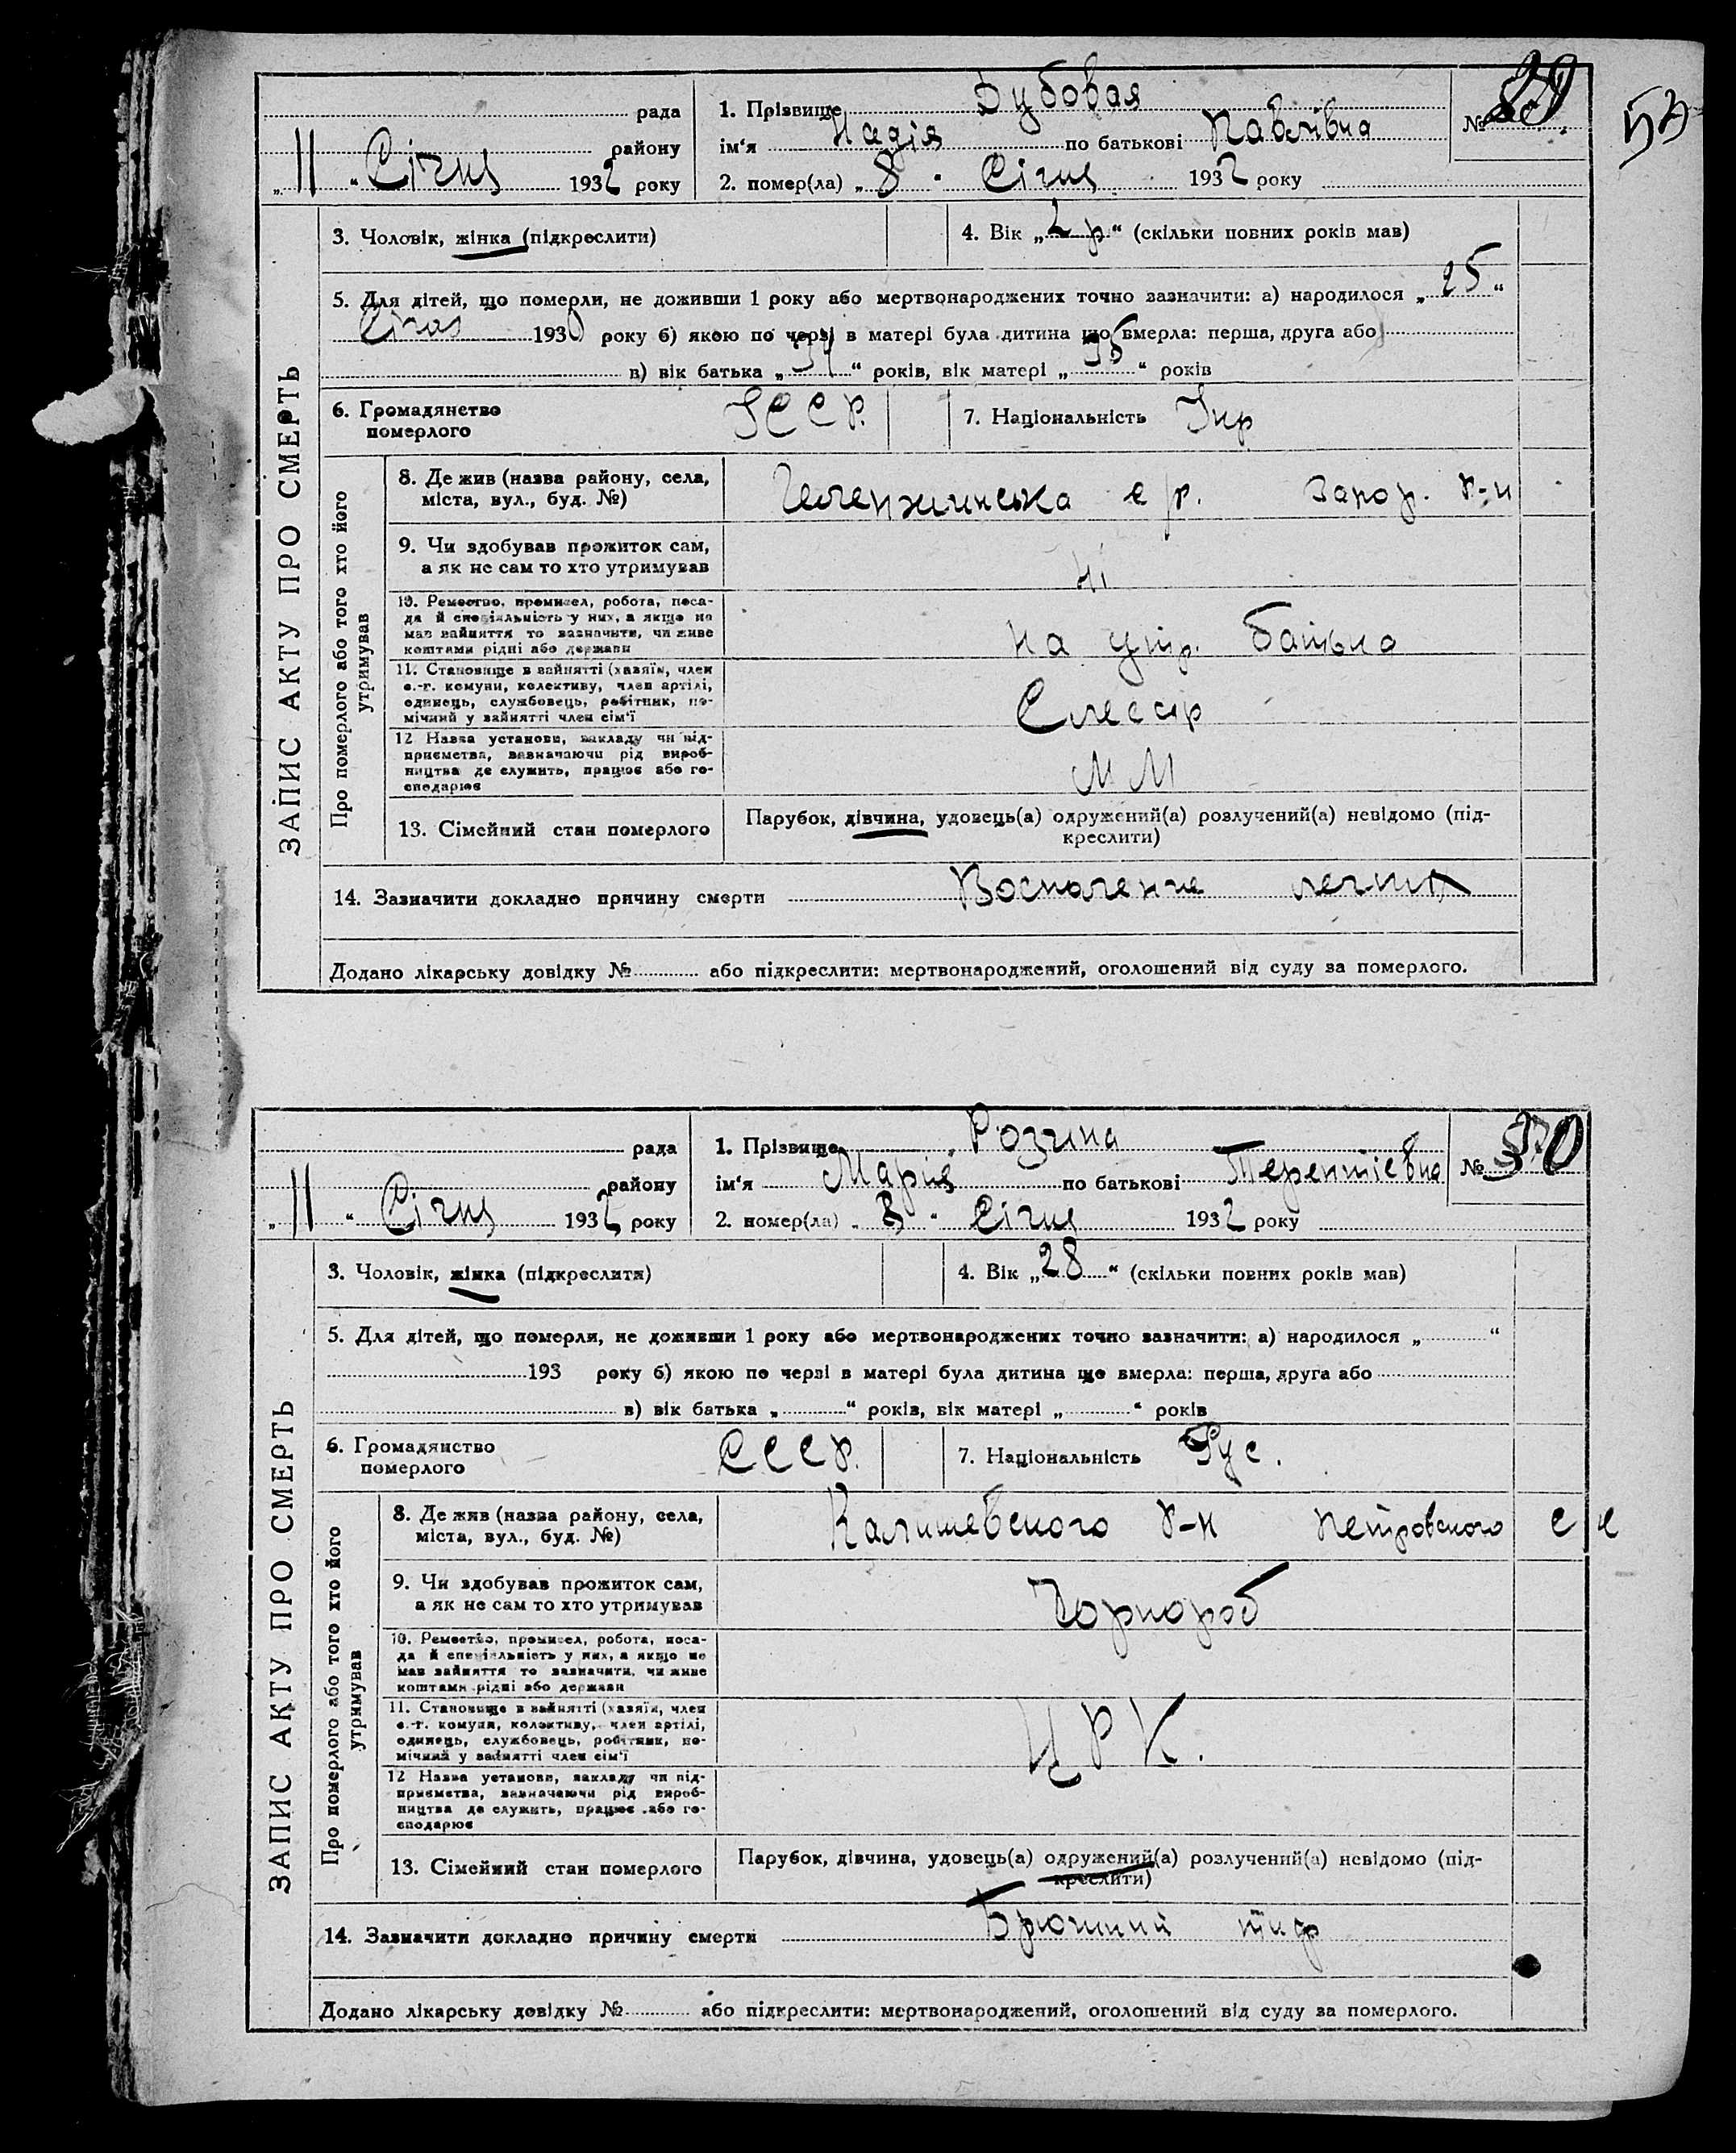 рада
району
„ 11 “ Січня 1932 року
1. Прізвище Дубовая
ім‘я Надія по батькові Павлівна
2. помер(ла) „ 8 “ Січня 1932 року
№ 29
53
ЗАПИС АКТУ ПРО СМЕРТЬ
3. Чоловік, жінка (підкреслити)
4. Вік „ 2 р “ (скільки повних років мав)
5. Для дітей, що померли, не доживши 1 року або мертвонароджених точно зазначити: а) народилося „ 25 “
Січня 1930 року б) якою по черзі в матері була дитина що вмерла: перша, друга або
в) вік батька „ 34 “ років, вік матері „ 35 “ років
6. Громадянство
померлого
УССР.
7. Національність Укр
Про померлого або того хто його
утримував
8. Де жив (назва району, села,
міста, вул., буд. №)
с/р. Запор. р-н
9. Чи здобував прожиток сам,
а як не сам то хто утримував
ні
10. Ремество, промисел, робота, поса-
да й спеціяльність у них, а якщо не
мав зайняття то зазначити, чи живе
коштами рідні або держави
на утр. батька
11. Становище в зайнятті (хазяїн, член
с.-г. комуни, колективу, член артілі,
одинець, службовець, робітник, по-
мічний у зайнятті член сім‘ї
Слесар
12 Назва установи, закладу чи під-
приємства, зазначаючи рід вироб-
ництва де служить, працює або го-
сподарює
ММ
13. Сімейний стан померлого
Парубок, дівчина, удовець(а) одружений(а) розлучений(а) невідомо (під-
креслити)
14. Зазначити докладно причину смерти Воспаление легких
Додано лікарську довідку № або підкреслити: мертвонароджений, оголошений від суду за померлого.
рада
району
„ 11 “ Січня 1932 року
1. Прізвище Розгина
ім‘я Марія по батькові Терентієвна
2. помер(ла) „ 8 “ Січня 1932 року
№ 30
ЗАПИС АКТУ ПРО СМЕРТЬ
3. Чоловік, жінка (підкреслити)
4. Вік „ 28 “ (скільки повних років мав)
5. Для дітей, що померли, не доживши 1 року або мертвонароджених точно зазначити: а) народилося „ “
193 року б) якою по черзі в матері була дитина що вмерла: перша, друга або
в) вік батька „ “ років, вік матері „ “ років
6. Громадянство
померлого
СССР.
7. Національність Рус.
Про померлого або того хто його
утримував
8. Де жив (назва району, села,
міста, вул., буд. №)
Калишевского р-н Петровского с
9. Чи здобував прожиток сам,
а як не сам то хто утримував
Чорнороб
10. Ремество, промисел, робота, поса-
да й спеціяльність у них, а якщо не
мав зайняття то зазначити, чи живе
коштами рідні або держави
11. Становище в зайнятті (хазяїн, член
с.-г. комуни, колективу, член артілі,
одинець, службовець, робітник, по-
мічний у зайнятті член сім‘ї
ЦРК.
12 Назва установи, закладу чи під-
приємства, зазначаючи рід вироб-
ництва де служить, працює або го-
сподарює
13. Сімейний стан померлого
Парубок, дівчина, удовець(а) одружений(а) розлучений(а) невідомо (під-
креслити)
14. Зазначити докладно причину смерти Брюшний тиф
Додано лікарську довідку № або підкреслити: мертвонароджений, оголошений від суду за померлого.